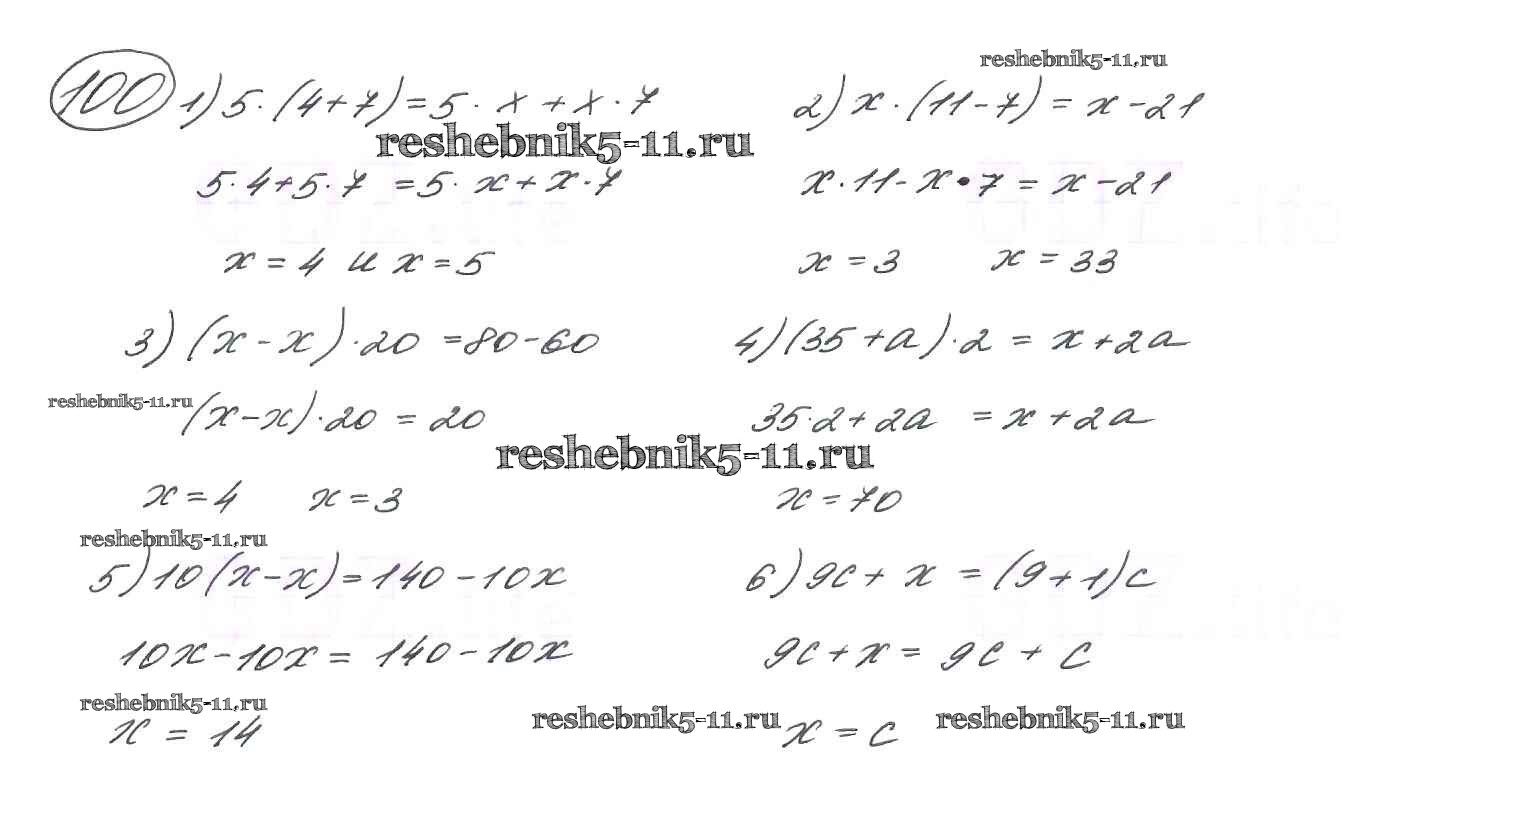 reshebnik5-11.ru
100 1) 5·(4+7)=5·x+x·7
2) x·(11-7)=x-21
reshebnik5-11.ru
5·4+5·7=5·x+x·7
x·11-x·7=x-21
x=4 и x=5
x=3 x=33
3) (x-x)·20=80-60
4) (35+a)·2=x+2a
reshebnik5-11.ru
(x-x)·20=20
35·2+2a=x+2a
reshebnik5-11.ru
x=4 x=3
x=70
reshebnik5-11.ru
5) 10(x-x)=140-10x
6) 9c+x=(9+1)c
10x-10x=140-10x
9c+x=9c+c
reshebnik5-11.ru
reshebnik5-11.ru
reshebnik5-11.ru
x=14
x=c